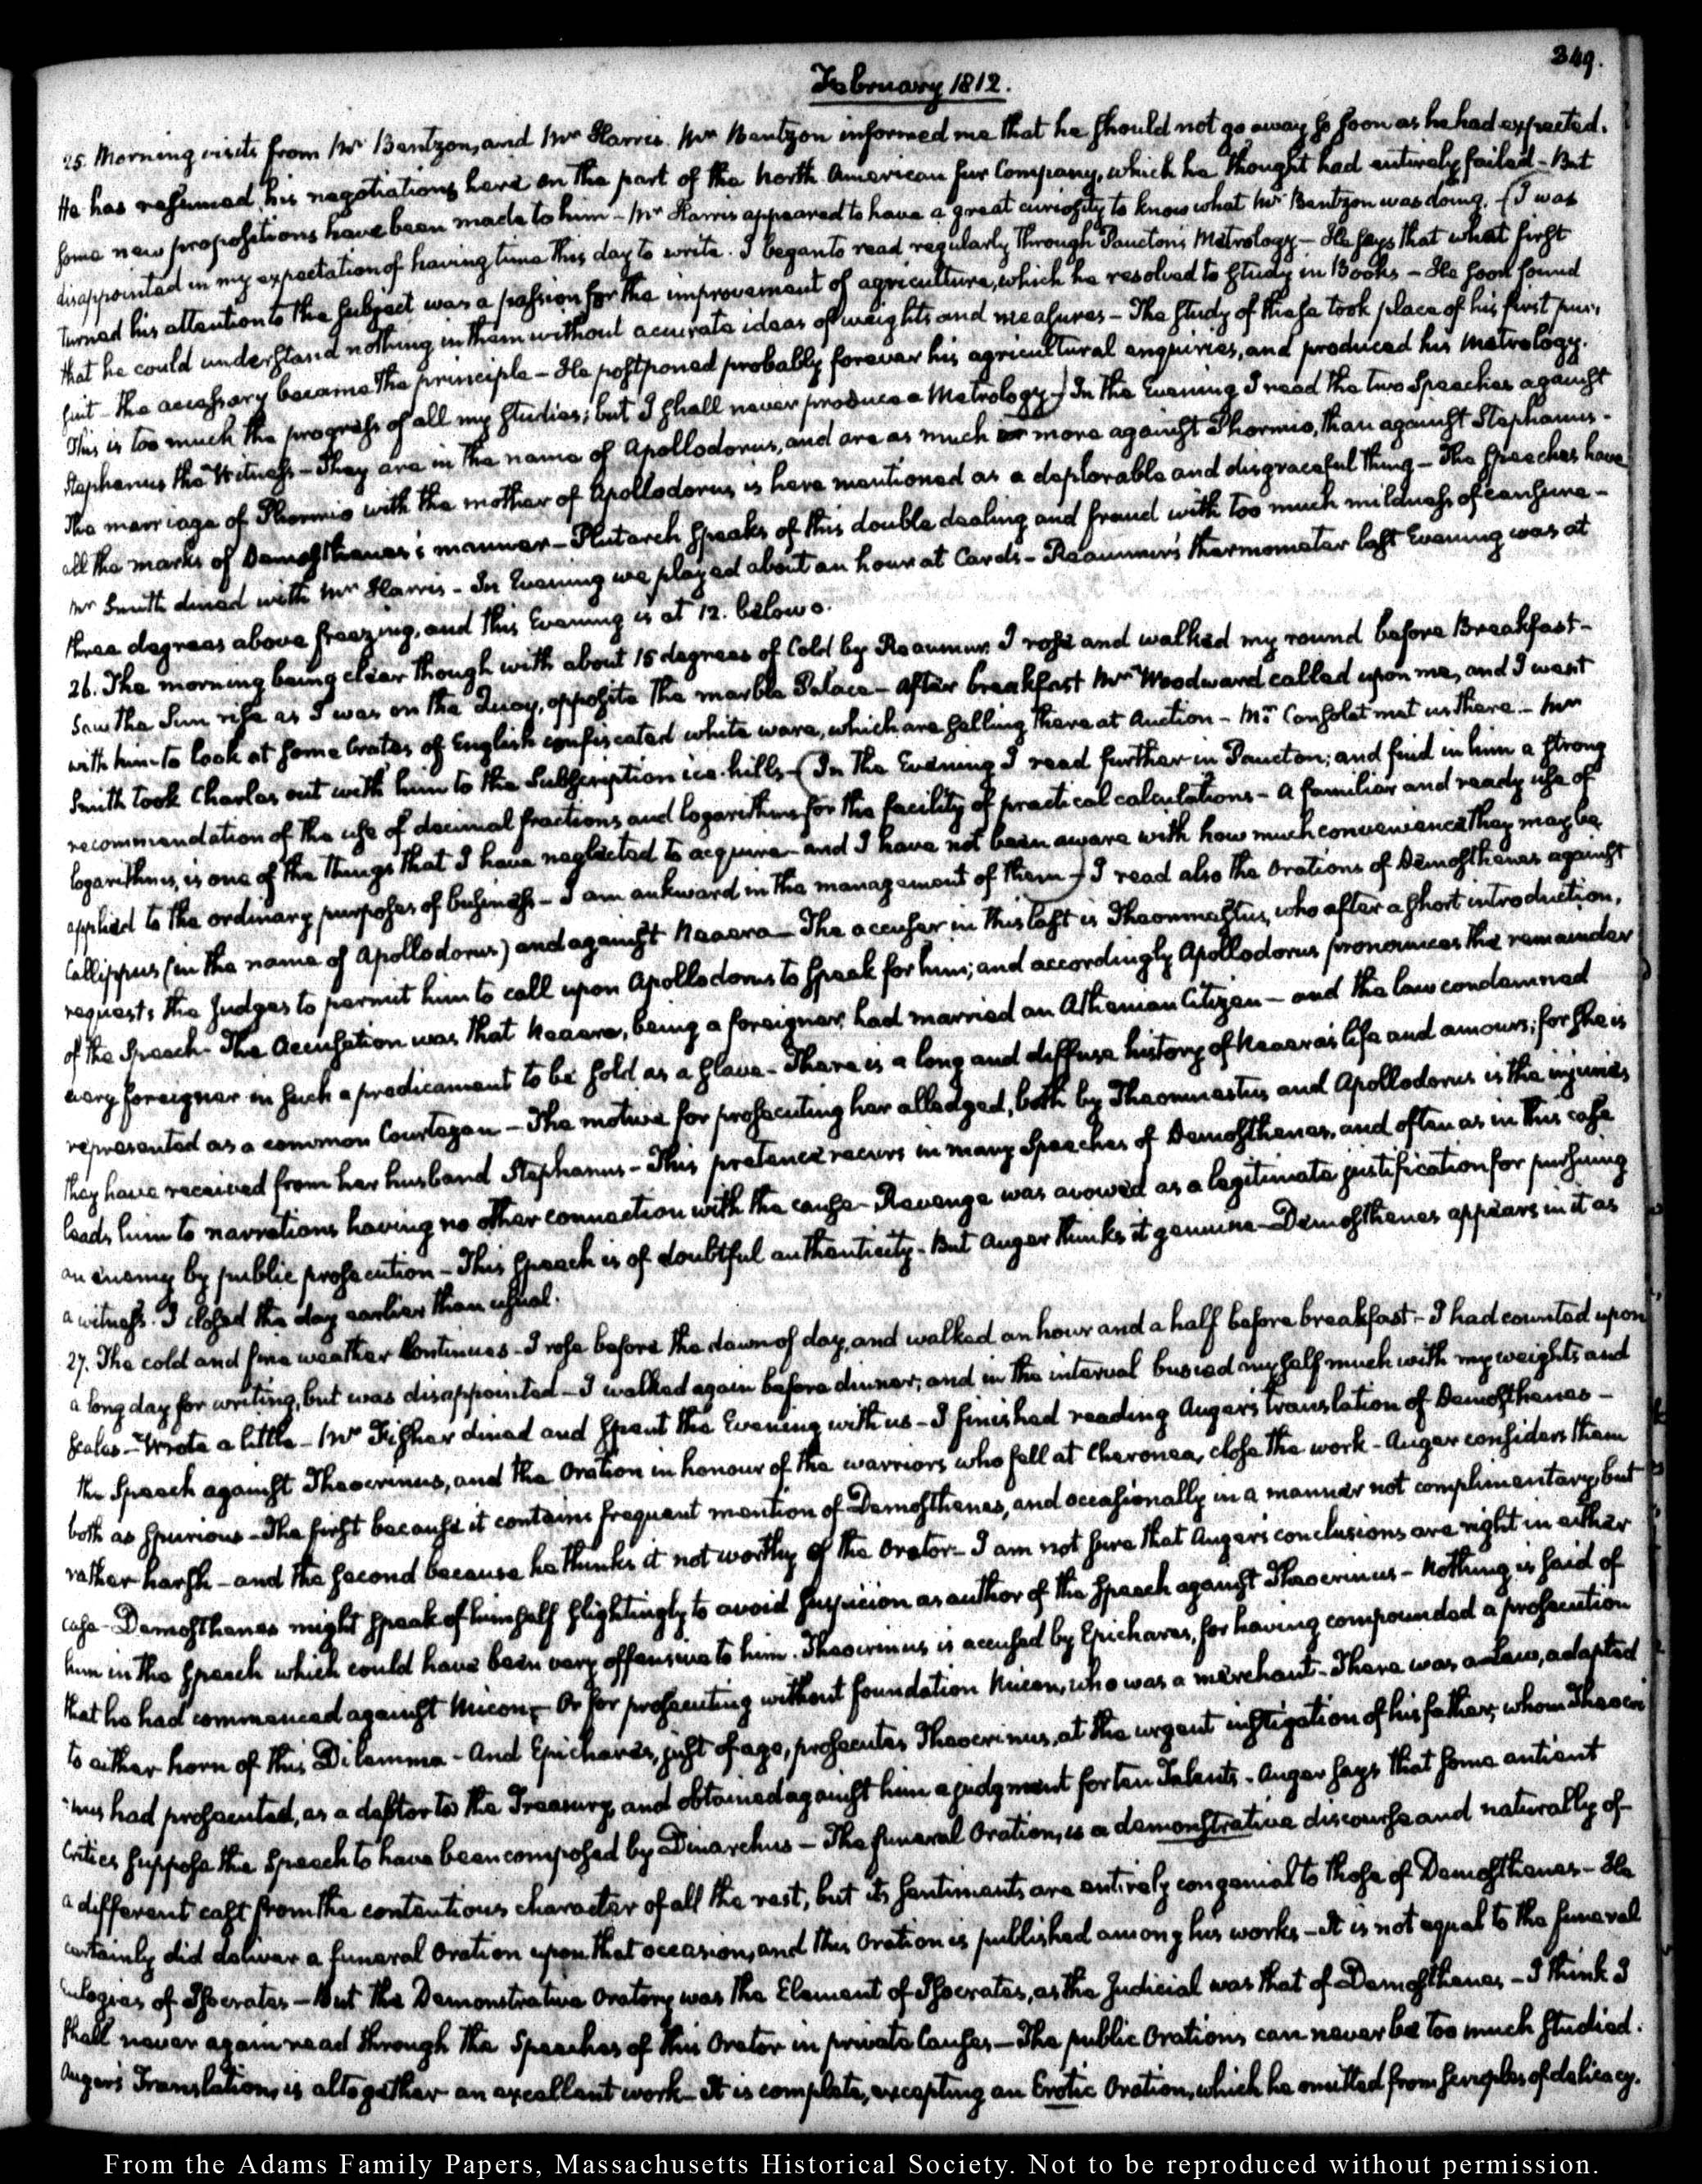 349.
February 1812.
25. Morning visits from Mr Bentzon, and Mr Harris. Mr Bentzon informed me that he should not go away so soon as he had expected.
He has resumed his negotiations here on the part of the North American fur Company, which he thought had entirely failed - But
some new propositions have been made to him - Mr Harris appeared to have a great curiosity to know what Mr Bentzon was doing. (I was
disappointed in my expectation of having time this day to write. I began to read regularly through Paucton's Metrology - He says that what first
turned his attention to the subject was a passion for the improvement of agriculture, which he resolved to study in Books - He soon found
that he could understand nothing in them without accurate ideas of weights and measures - The study of these took place of his first pur,
suit - the accessary became the principle - He postponed probably forever his agricultural enquiries, and produced his Metrology.
This is too much the progress of all my studies; but I shall never produce a Metrology.) In the Evening I read the two Speeches against
Stephanus the Witness - They are in the name of Apollodorus, and are as much or more against Phormio, than against Stephanus -
The marriage of Phormio with the mother of Apollodorus is here mentioned as a deplorable and disgraceful thing - The speeches have
all the marks of Demosthenes's manner - Plutarch speaks of this double dealing and fraud with too much mildness of censure -
Mr Smith dined with Mr Harris - In Evening we played about an hour at Cards - Reaumur's thermometer last Evening was at
three degrees above freezing, and this Evening is at 12. below 0.
26. The morning being clear though with about 15 degrees of Cold by Reaumur I rose and walked my round before Breakfast -
Saw the Sun rise as I was on the Quay, opposite the marble Palace - After breakfast Mr Woodward called upon me, and I went
with him to look at some Crates of English confiscated white ware, which are selling there at Auction - Mr Consolat met us there - Mr
Smith took Charles out with him to the Subscription ice-hills - (In the Evening I read further in Paucton; and find in him a strong
recommendation of the use of decimal fractions and logarithms for the facility of practical calculations - A familiar and ready use of
logarithms, is one of the things that I have neglected to acquire - and I have not been aware with how much convenience they may be
applied to the ordinary purposes of business - I am aukward in the management of them -) I read also the Orations of Demosthenes against
Callippus (in the name of Apollodorus) and against Neaera - The accuser in this last is Theomnestus, who after a short introduction,
requests the Judges to permit him to call upon Apollodorus to speak for him; and accordingly Apollodorus pronounces the remainder
of the Speech - The Accusation was that Neaera, being a foreigner, had married an Athenian Citizen - and the law condemned
every foreigner in such a predicament to be sold as a slave - There is a long and diffuse history of Neaera's life and amours; for she is
represented as a common Courtezan - The motive for prosecuting her alledged, both by Theomnestus and Apollodorus is the injuries
they have received from her husband Stephanus - This pretence recurs in many Speeches of Demosthenes, and often as in this case
leads him to narrations having no other connection with the cause - Revenge was avowed as a legitimate justification for pursuing
an enemy by public prosecution - This speech is of doubtful authenticity - But Auger thinks it genuine - Demosthenes appears in it as
a witness. I closed the day earlier than usual.
27. The cold and fine weather Continues - I rose before the dawn of day, and walked an hour and a half before breakfast - I had counted upon
a long day for writing, but was disappointed - I walked again before dinner; and in the interval busied myself much with my weights and
scales - Wrote a little - Mr Fisher dined and spent the Evening with us - I finished reading Auger's translation of Demosthenes -
The Speech against Theocrinus, and the Oration in honour of the warriors who fell at Cheronea, close the work - Auger considers them
both as spurious - The first because it contains frequent mention of Demosthenes, and occasionally in a manner not complimentary, but
rather harsh - and the second because he thinks it not worthy of the Orator - I am not sure that Auger's conclusions are right in either
case - Demosthenes might speak of himself slightingly to avoid suspicion as author of the speech against Theocrinus - Nothing is said of
him in the speech which could have been very offensive to him. Theocrinus is accused by Epichares, for having compounded a prosecution
that he had commenced against Micon; - Or for prosecuting without foundation Micon, who was a merchant - There was a Law, adapted
to either horn of this Dilemma - And Epichares, just of age, prosecutes Theocrinus, at the urgent instigation of his father, whom Theocri
nus had prosecuted, as a debtor to the Treasury, and obtained against him a judgment for ten Talents - Auger says that some antient
Critics suppose the Speech to have been composed by Dinarchus - The funeral Oration, is a demonstrative discourse and naturally of
a different cast from the contentious character of all the rest, but its sentiments are entirely congenial to those of Demosthenes - He
certainly did deliver a funeral Oration upon that occasion, and this Oration is published among his works - It is not equal to the funeral
eulogies of Isocrates - But the Demonstrative Oratory was the Element of Isocrates, as the Judicial was that of Demosthenes - I think I
shall never again read through the Speeches of this Orator in private Causes - The public Orations can never be too much studied.
Auger's Translation, is altogether an excellent work - It is complete, excepting an Erotic Oration, which he omitted from scruples of delicacy.
From the Adams Family Papers, Massachusetts Historical Society. Not to be reproduced without permission.